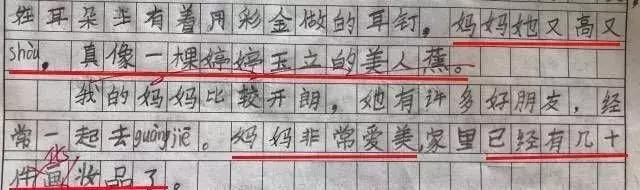 姓耳朵上有着用彩金做的耳钉。妈妈她又高又
shòu，真像一棵婷婷玉立的美人蕉。
我的妈妈比较开朗，她有许多好朋友，经
常一起去guàngjiē。妈妈非常爱美，家里已经有几十
件画化妆品了。